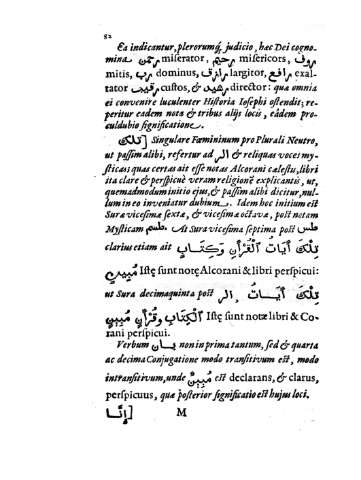 82
Ea indicantur, plerorumq́; judicio, hæc Dei cogno-
mina رحمن miserator, رحيم misericors, روف
mitis, رب dominus, رازق largitor, رافع exal-
tator رقيب custos, & رشيد director: quæ omnia
ei convenire luculenter Historia Iosephi ostendit; re-
peritur eadem nota & tribus alijs locis, eâdem pro-
culdubio significatione.
[تلك] Singulare Fœmininum pro Plurali Neutro,
ut passim alibi, refertur ad الر & reliquas voces my-
sticas: quas certas ait esse notas Alcorani cælestis, libri
ita clarè & perspicuè veram religionē explicantis, ut,
quemadmodum initio ejus, & passim alibi dicitur, nul-
lum in eo inveniatur dubium. Idem hoc initium est
Suræ vicesimæ sextæ, & vicesimæ octavæ, post notam
Mysticam طسم. At Sura vicesima septima post طس
clarius etiam ait تِلْكَ آيَاتُ الْقُرْآنِ وَكِتَابٍ
مُبِينٍ Istæ sunt notæ Alcorani & libri perspicui:
ut Sura decimaquinta post الر تِلْكَ آيَاتُ
الْكِتَابِ وَقُرْآنٍ مُبِينٍ Istæ sunt notæ libri & Co-
rani perspicui.
Verbum بان non in prima tantum, sed & quarta
ac decima Conjugatione modo transitivum est, modo
intransitivum, unde مُبِينٌ est declarans, & clarus,
perspicuus, quæ posterior significatio est hujus loci.
[إِنَّا M